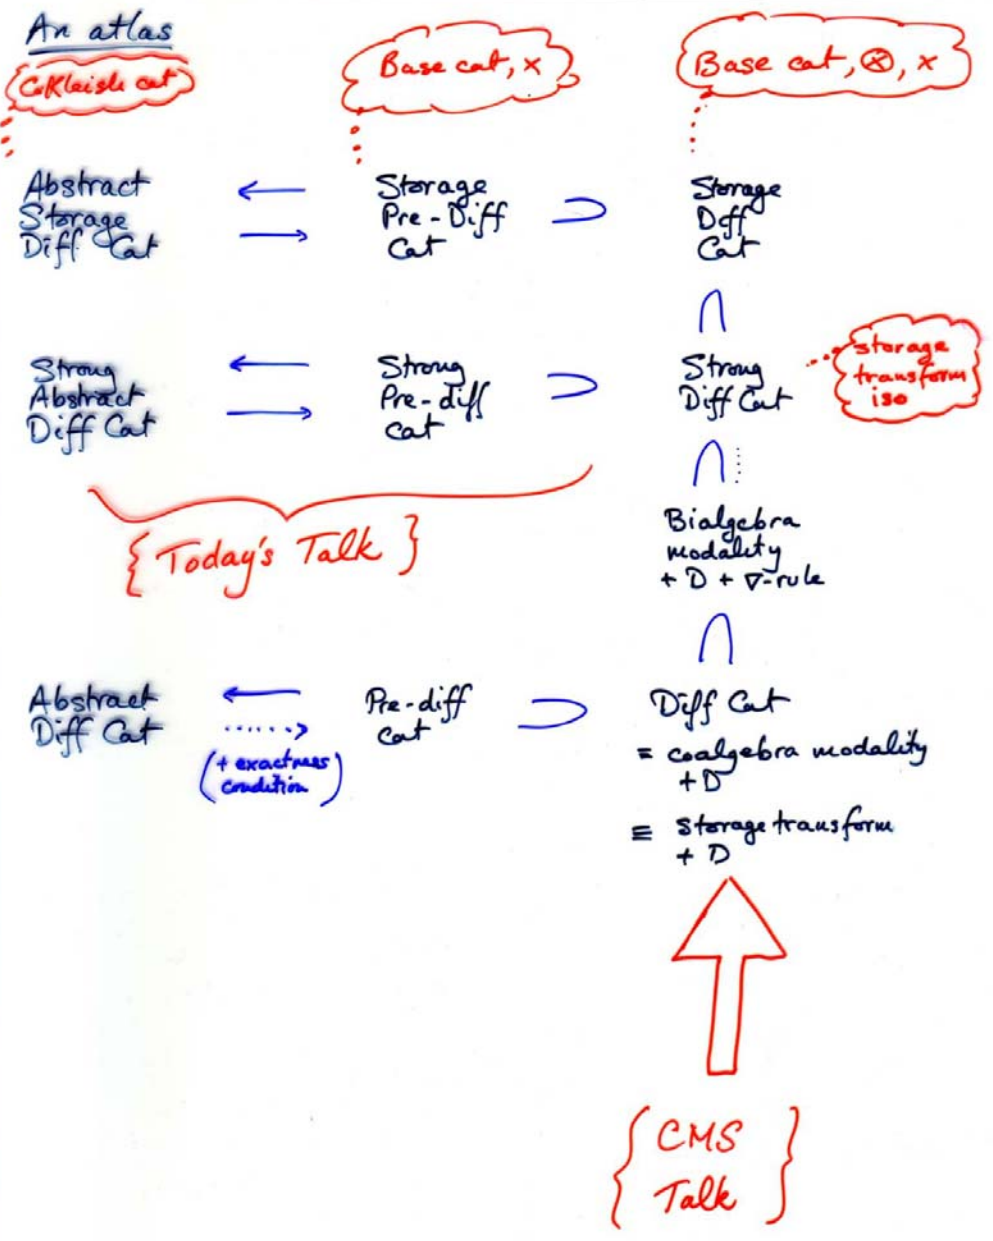 An atlas
CoKleisli cat
Base cat, ×
Base cat, ⊗, ×
Abstract
Storage
Diff Cat
←
→
Storage
Pre-Diff
Cat
⊃
Storage
Diff
Cat
∩
Strong
Abstract
Diff Cat
←
→
Strong
Pre-diff
cat
⊃
Strong
Diff Cat
storage
transform
iso
∩
{ Today's Talk }
Bialgebra
modality
+ D + ∇-rule
∩
Abstract
Diff Cat
←
→
(+ exactness
condition)
Pre-diff
cat
⊃
Diff Cat
= coalgebra modality
+ D
≡ Storage transform
+ D
{ CMS
Talk }